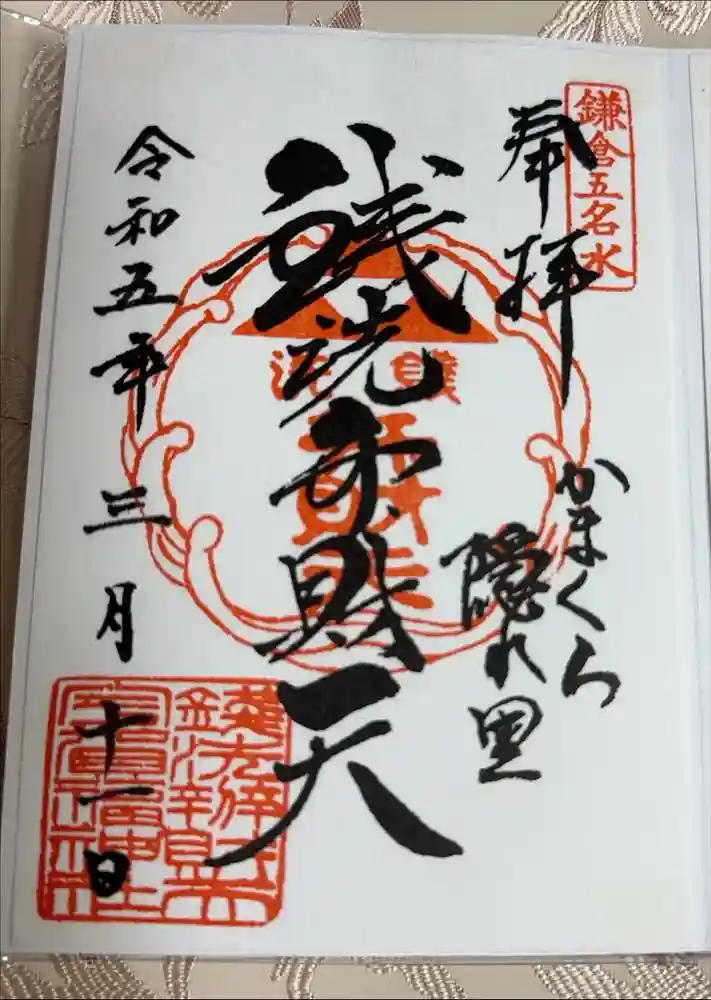 鎌倉五名水
奉拝
かまくら
隠れ里
銭洗弁財天
令和五年三月十一日